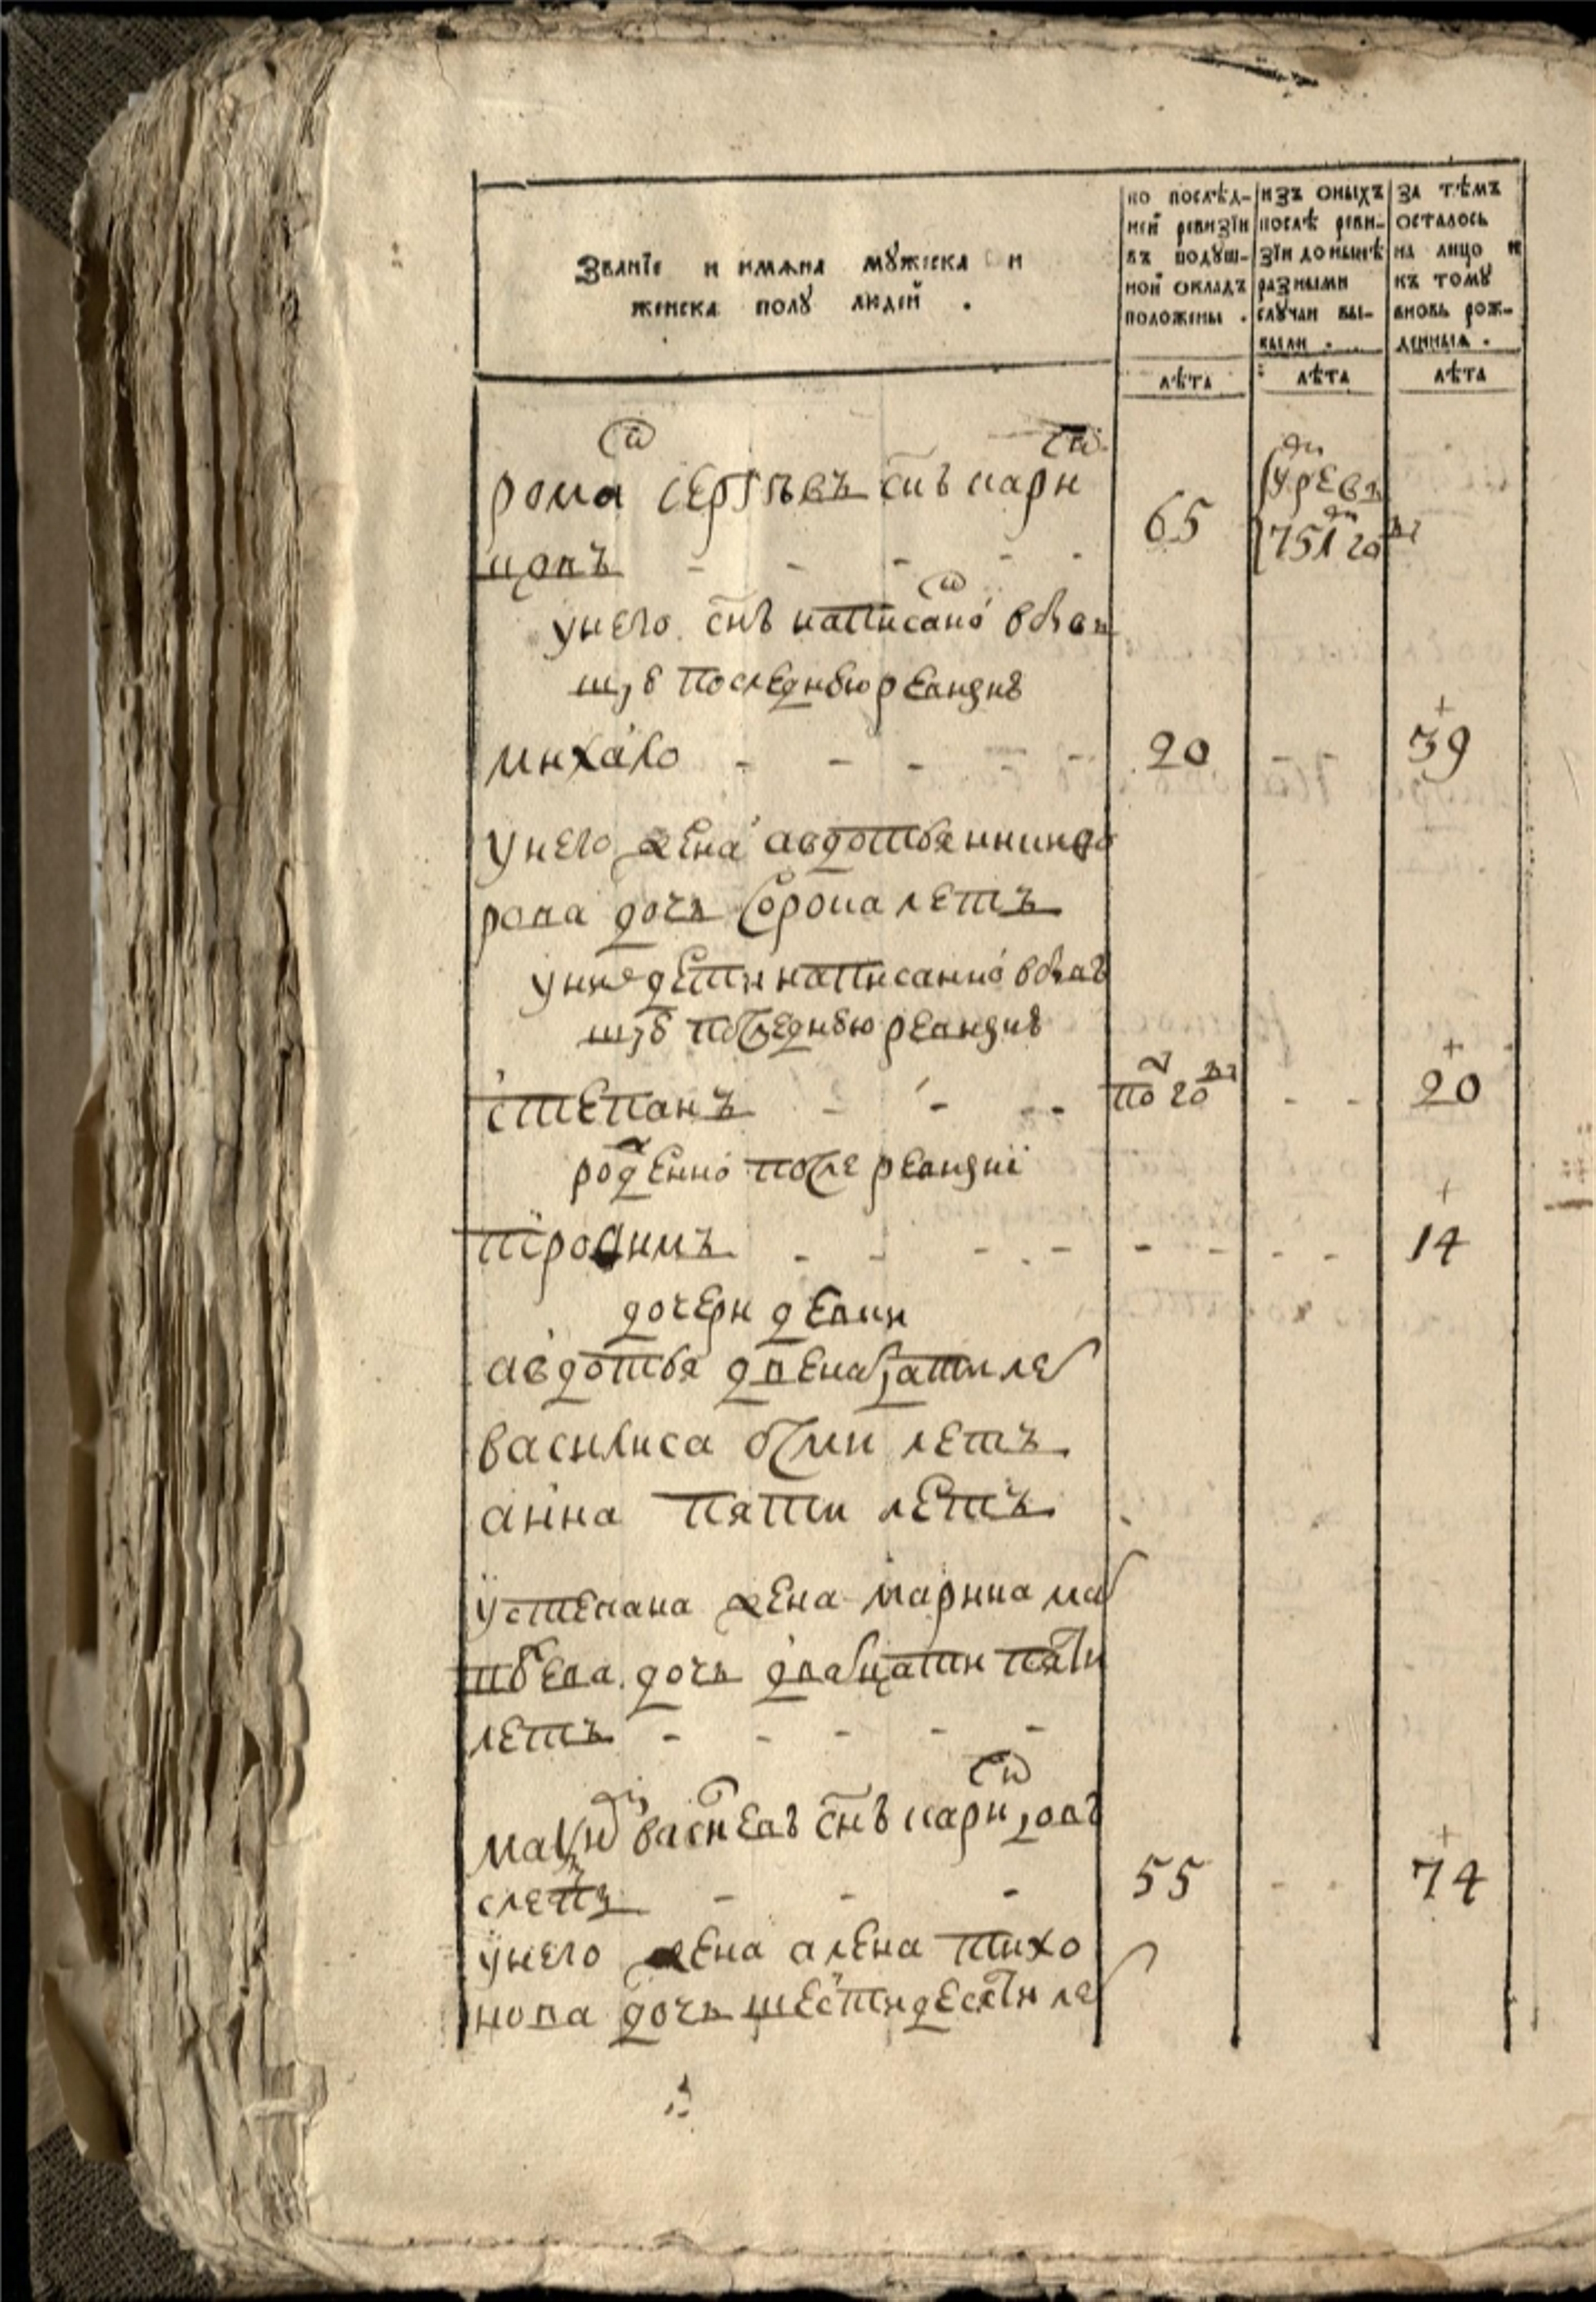 Званїе и имѧна мꙋжеска и
женска полꙋ людей .
по послѣд-
ней ревизїи
въ подꙋш-
ной окладъ
положены .
изъ оныхъ
послѣ реви-
зїи до нынѣ
разными
слꙋчаи вы-
были .
за тѣмъ
осталось
на лицо и
къ томꙋ
вновь рож-
денныѧ .
лѣта
лѣта
лѣта
рома сергѣвъ снъ кари
цовъ 65
751 го
у него снъ написано
последнюю ревизию
михаило 20 39
у него жена авдотья никифо
рова дочь сорока летъ
у них дети написанно
последнюю ревизию
степанъ по го 20
роденно после ревизиї
трофимъ 14
дочери девки
авдотья двенатцати ле
василиса осми летъ
анна пяти летъ
у степана жена марина ма
твѣева дочь двадцати пяти
летъ
васиевъ снъ карицовъ
слепъ 55 74
у него жена алена тихо
нова дочь шестидесяти ле